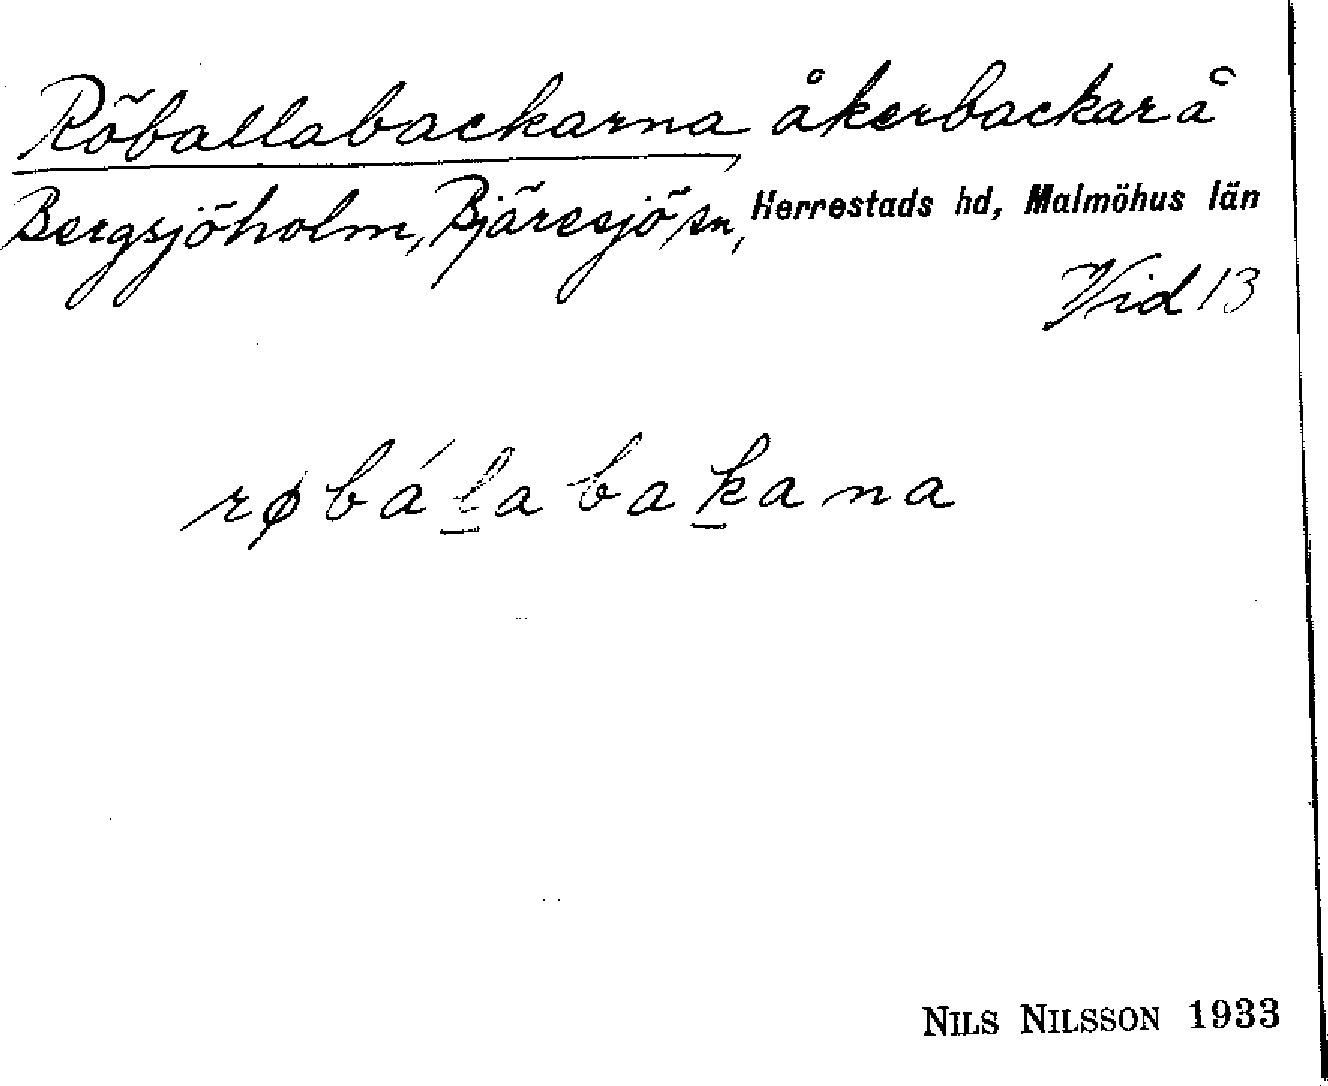 Röballabackarna, åkerbackar å
Bergsjöholm, Bjäresjö sn, Herrestads hd, Malmöhus län
Vid 13
røbá l̲a ba k̲a na
NILS NILSSON 1933